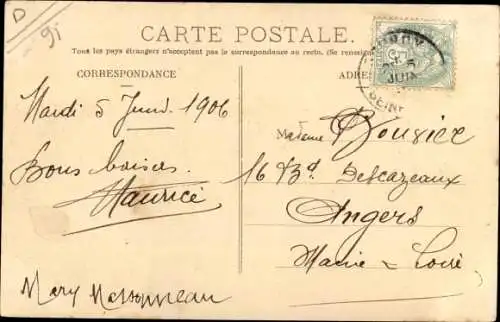 D
91
CARTE POSTALE.
Tous les pays étrangers n'acceptent pas la correspondance au recto. (Se renseigne
CORRESPONDANCE
ADRE
5
JUIN
SEINE
Mardi 5 Juin 1906
Bons baisers
Maurice
Madame
16 Bd Descazeaux
Angers
Maine-Loire
Mary Massonneau